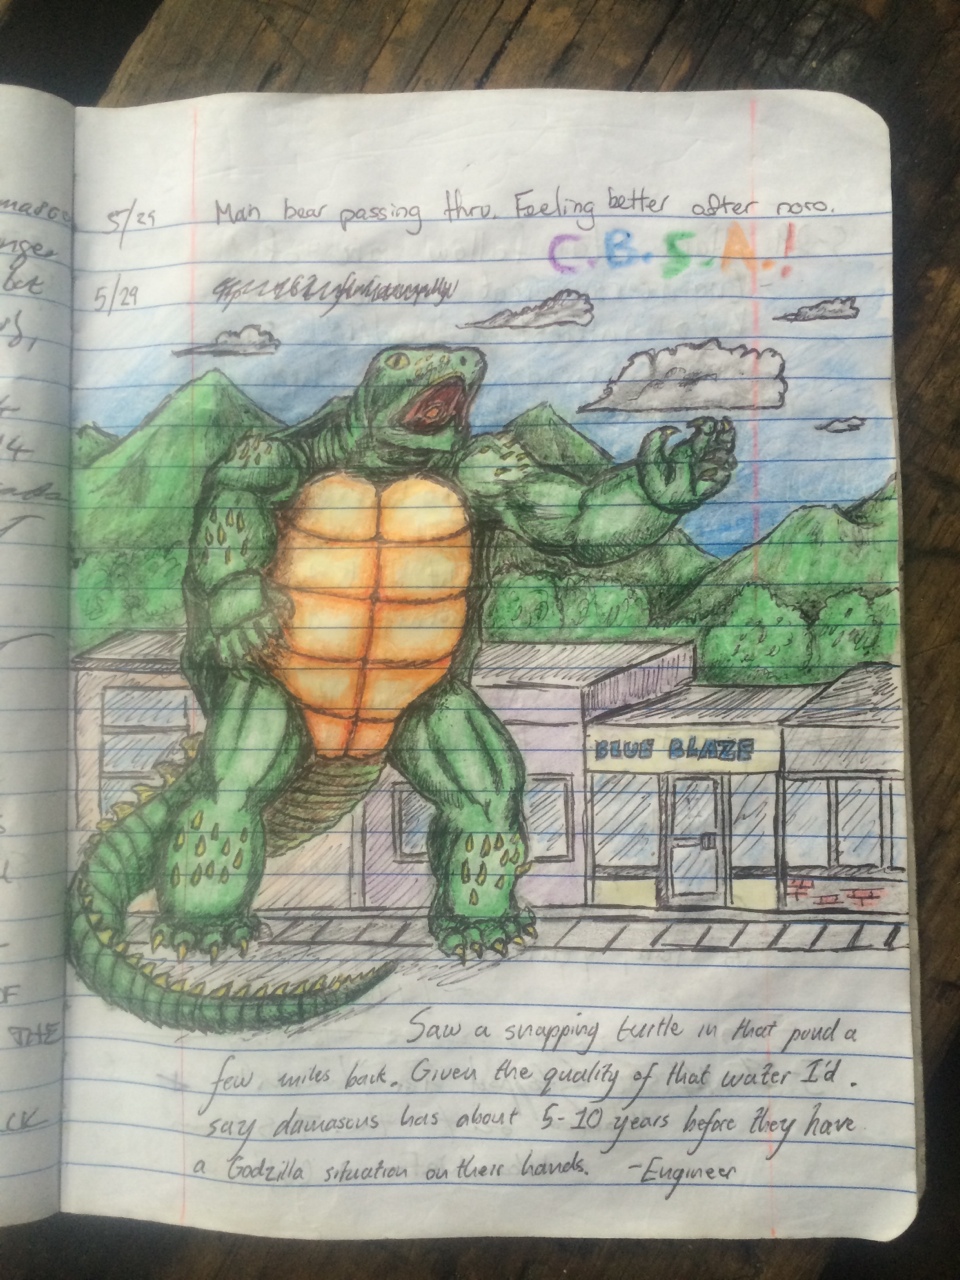 5/29 Man bear passing thru. Feeling better after noro.
C.B.S.A.!
5/29
BLUE BLAZE
Saw a snapping turtle in that pond a
few miles back. Given the quality of that water I'd
say damascus has about 5-10 years before they have
a Godzilla situation on their hands. -Engineer
but
14
OF
THE
CK